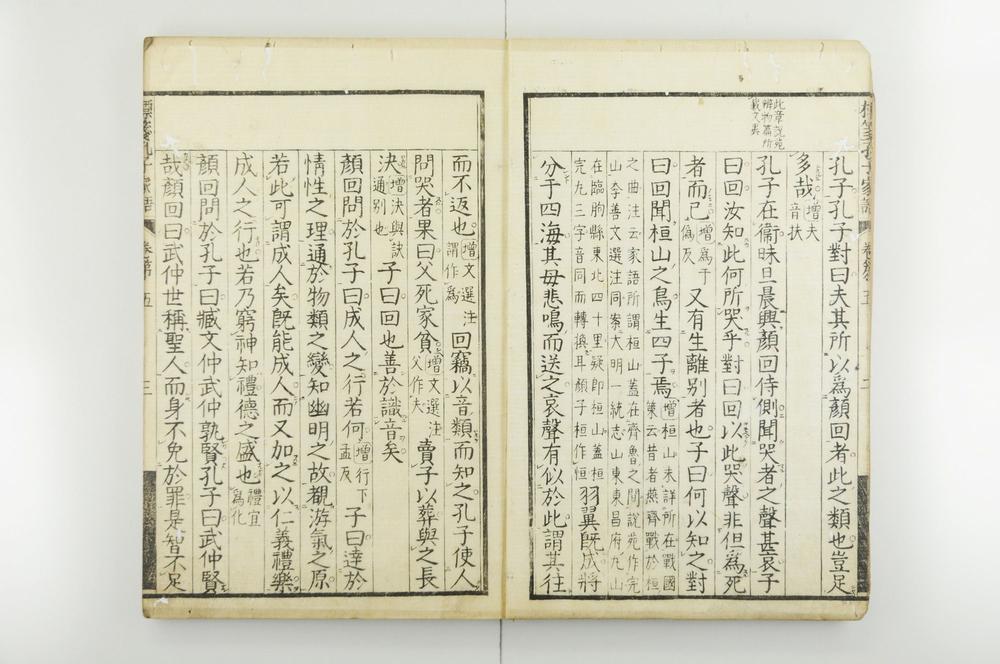 標箋孔子家語 卷第五 二
孔子孔子對曰夫其所以爲顏回者此之類也豈足
多哉 增夫音扶
此章說苑
辨物篇所
載文異
孔子在衞昧旦晨興顏回侍側聞哭者之聲甚哀子
曰回汝知此何所哭乎對曰回以此哭聲非但爲死
者而已 增爲于僞反 又有生離別者也子曰何以知之對
曰回聞桓山之鳥生四子焉 增桓山未詳所在戰國策云昔者燕齊戰於桓
之曲注云家語所謂桓山蓋在齊魯之間說苑作完
山李善文選注同案大明一統志山東東昌府九山
在臨朐縣東北四十里疑即桓山蓋桓
完九三字音同而轉換耳顏子桓作恒 羽翼既成將
分于四海其母悲鳴而送之哀聲有似於此謂其往
而不返也 增文選注謂作爲 回竊以音類而知之孔子使人
問哭者果曰父死家貧 增文選注父作夫 賣子以葬與之長
決 增決與訣通別也 子曰回也善於識音矣
顏回問於孔子曰成人之行若何 增行下孟反 子曰達於
情性之理通於物類之變知幽明之故覩游氣之原
若此可謂成人矣既能成人而又加之以仁義禮樂
成人之行也若乃窮神知禮德之盛也 禮宜爲化
顏回問於孔子曰臧文仲武仲孰賢孔子曰武仲賢
哉顏回曰武仲世稱聖人而身不免於罪是智不足
標箋孔子家語 卷第五 三